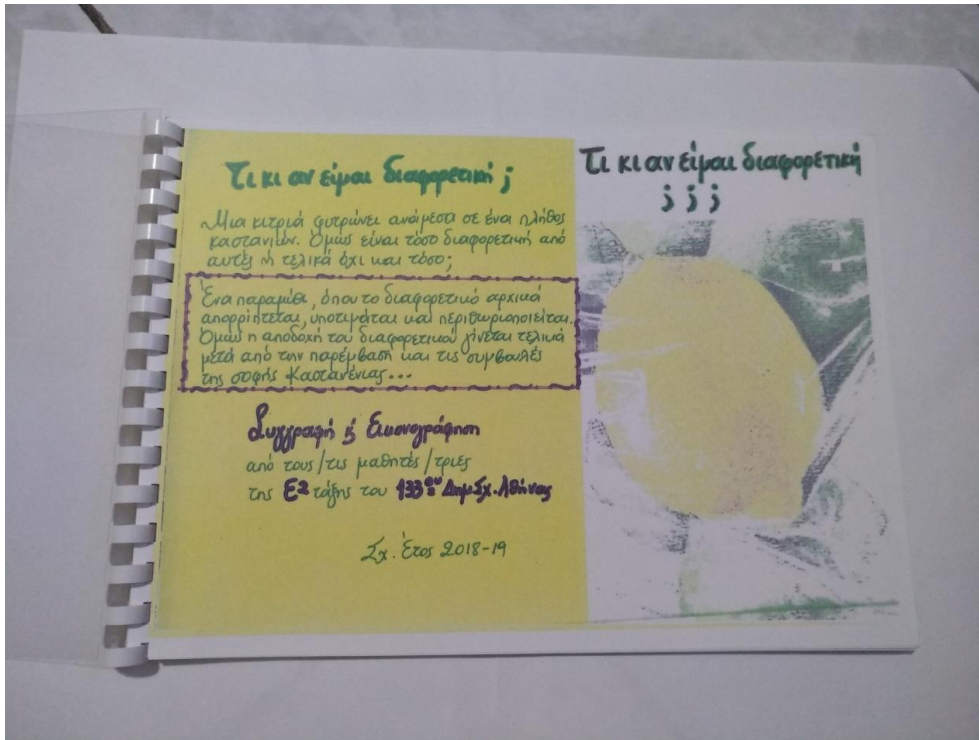 Τι κι αν είμαι διαφορετική ;
Μια κιτριά φυτρώνει ανάμεσα σε ένα πλήθος
καστανιών. Όμως είναι τόσο διαφορετική από
αυτές ή τελικά όχι και τόσο;
Ένα παραμύθι, όπου το διαφορετικό αρχικά
απορρίπτεται, υποτιμάται και περιθωριοποιείται.
Όμως η αποδοχή του διαφορετικού γίνεται τελικά
μετά από την παρέμβαση και τις συμβουλές
της σοφής Καστανένιας...
Συγγραφή & Εικονογράφηση
από τους/τις μαθητές/τριες
της Ε2 τάξης του 133ου Δημ.Σχ. Αθήνας
Σχ. Έτος 2018-19
Τι κι αν είμαι διαφορετική
; ; ;